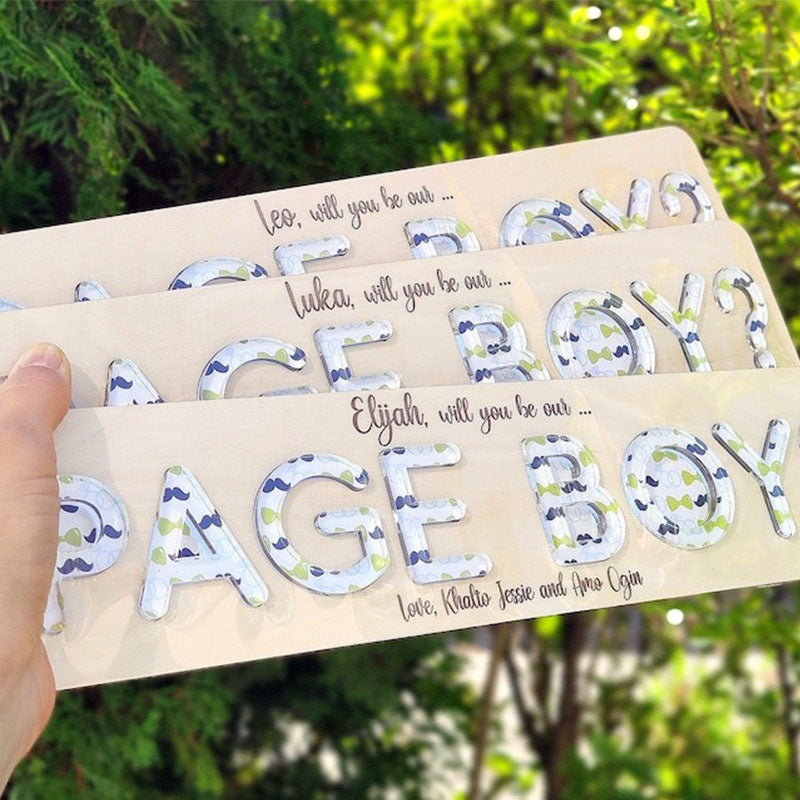 Leo, will you be our ...
PAGE BOY?
Luka, will you be our ...
PAGE BOY?
Elijah, will you be our ...
PAGE BOY
Love, Khalto Jessie and Amo Ogin